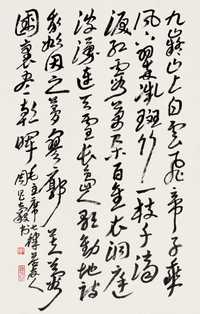 九嶷山上白雲飛帝子乘
風下翠微斑竹一枝千滴
淚紅霞萬朵百重衣洞庭
波湧連天雪長島人歌動地詩
我欲因之夢寥廓芙蓉
國裏盡朝暉毛主席七律答友人
周